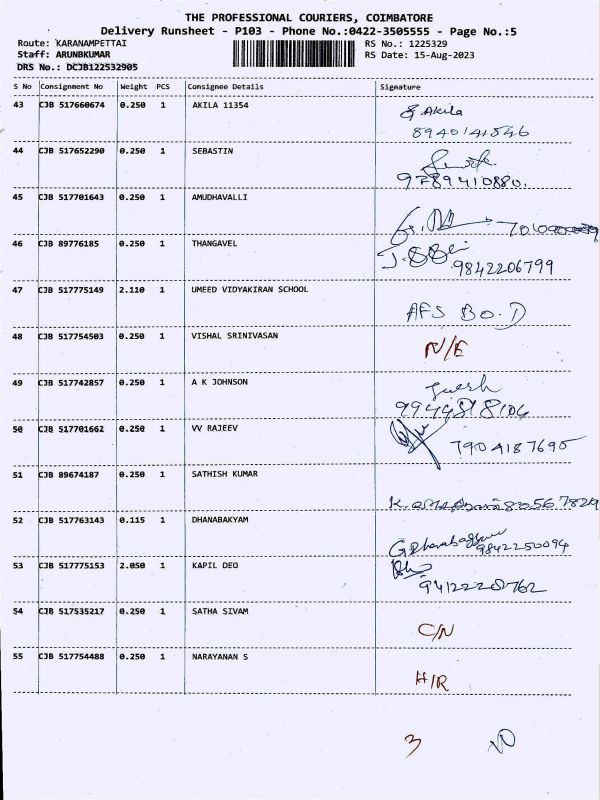 THE PROFESSIONAL COURIERS, COIMBATORE
Delivery Runsheet - P103 - Phone No.:0422-3505555 - Page No.:5
Route: KARANAMPETTAI RS No.: 1225329
Staff: ARUNBKUMAR RS Date: 15-Aug-2023
DRS No.: DCJB122532905
S No Consignment No Weight PCS Consignee Details Signature
43 CJB 517660674 0.250 1 AKILA 11354
Akila
8940141546
44 CJB 517652290 0.250 1 SEBASTIN
9789410880.
45 CJB 517701643 0.250 1 AMUDHAVALLI
46 CJB 89776185 0.250 1 THANGAVEL
9842206799
47 CJB 517775149 2.110 1 UMEED VIDYAKIRAN SCHOOL
AFS BO.D
48 CJB 517754503 0.250 1 VISHAL SRINIVASAN
N/E
49 CJB 517742857 0.250 1 A K JOHNSON
50 CJB 517701662 0.250 1 VV RAJEEV
7904187695
51 CJB 89674187 0.250 1 SATHISH KUMAR
52 CJB 517763143 0.115 1 DHANABAKYAM
9842250094
53 CJB 517775153 2.050 1 KAPIL DEO
9412228762
54 CJB 517535217 0.250 1 SATHA SIVAM
C/N
55 CJB 517754488 0.250 1 NARAYANAN S
H/R
3 NO